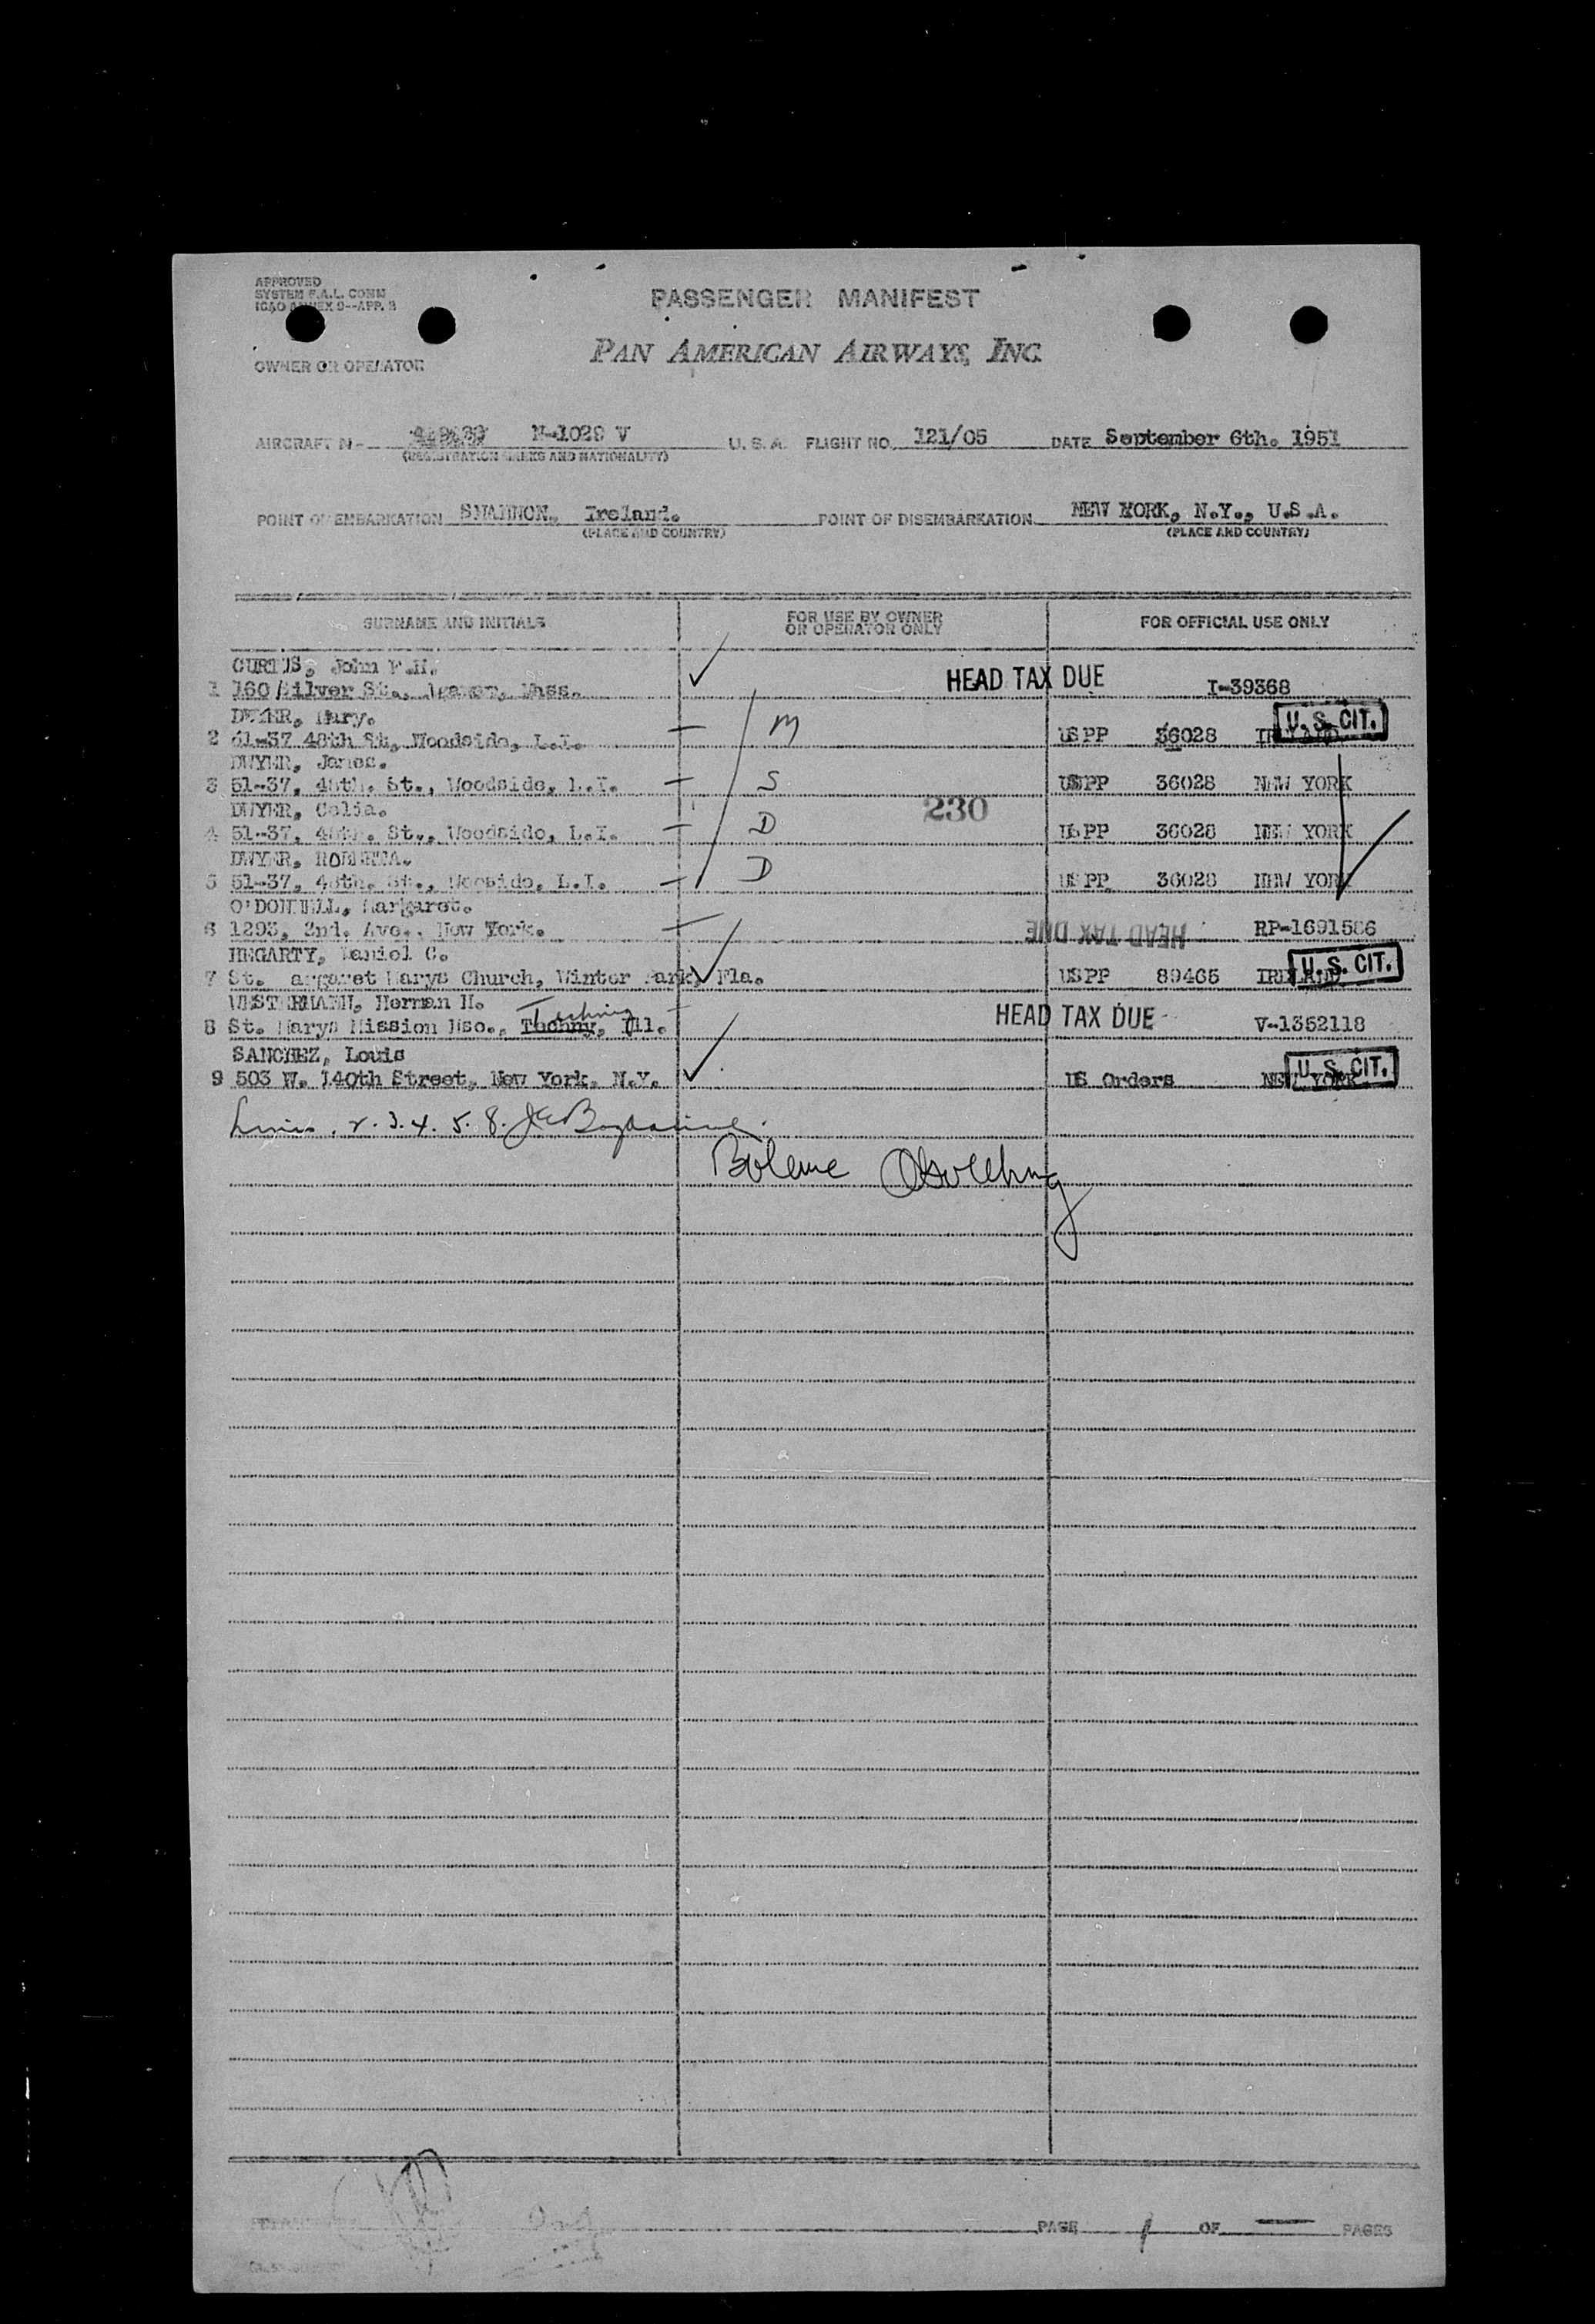 APPROVED
SYSTEM F.A.L. COMM
ICAO ANNEX 9--APP. 3
PASSENGER MANIFEST
PAN AMERICAN AIRWAYS, INC.
OWNER OR OPERATOR
AIRCRAFT N- N-1029 V U. S. A. FLIGHT NO. 121/05 DATE September 6th. 1951
(REGISTRATION MARKS AND NATIONALITY)
POINT OF EMBARKATION SHANNON, Ireland. POINT OF DISEMBARKATION NEW YORK, N.Y., U.S.A.
(PLACE AND COUNTRY) (PLACE AND COUNTRY)
SURNAME AND INITIALS FOR USE BY OWNER OR OPERATOR ONLY FOR OFFICIAL USE ONLY
CURTIS, John F.H.
1 160 Silver St., Agawam, Mass. HEAD TAX DUE I-39368
DWYER, Mary.
2 61-37 48th St, Woodside, L.I. M US PP 36028 IRELAND U. S. CIT.
DWYER, James.
3 51-37, 48th. St., Woodside, L.I. S US PP 36028 NEW YORK
DWYER, Celia.
4 51-37, 48th. St., Woodside, L.I. D 230 US PP 36028 NEW YORK
DWYER, ROBERTA.
5 51-37, 48th. St., Woosido, L.I. D US PP 36028 NEW YORK
O'DONNELL, Margaret.
6 1293, 2nd. Ave.. New York. HEAD TAX DUE RP-1691586
HEGARTY, Daniel C.
7 St. argaret Marys Church, Winter Park, Fla. US PP 89465 IRELAND U. S. CIT.
WESTERMANN, Herman H. Techny
8 St. Marys Mission Hso., Tochny, Ill. HEAD TAX DUE V-1352118
SANCHEZ, Louis
9 503 W. 140th Street, New York, N.Y. US Orders NEW YORK U. S. CIT.
2. 3. 4. 5. 8.
PAGE 1 OF — PAGES